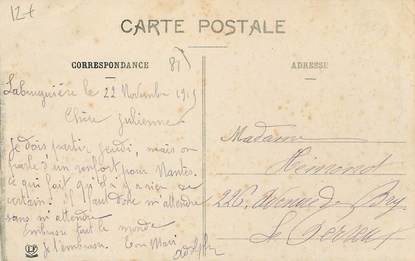 12+
CARTE POSTALE
CORRESPONDANCE
81
ADRESSE
le 22 Novembre 191
Chère Julienne
Je dois partir jeudi, mais on
parle d'un renfort pour Nantes.
ce qui fait qu'il n'y a rien de
certain. Il faut donc m'attendre
sans m'attendre
Embrasse tout le monde
Je t'embrasse. Ton Mari
Adolphe
Madame
Hémonot
226 Avenue de Bry
Le Perreux
LP